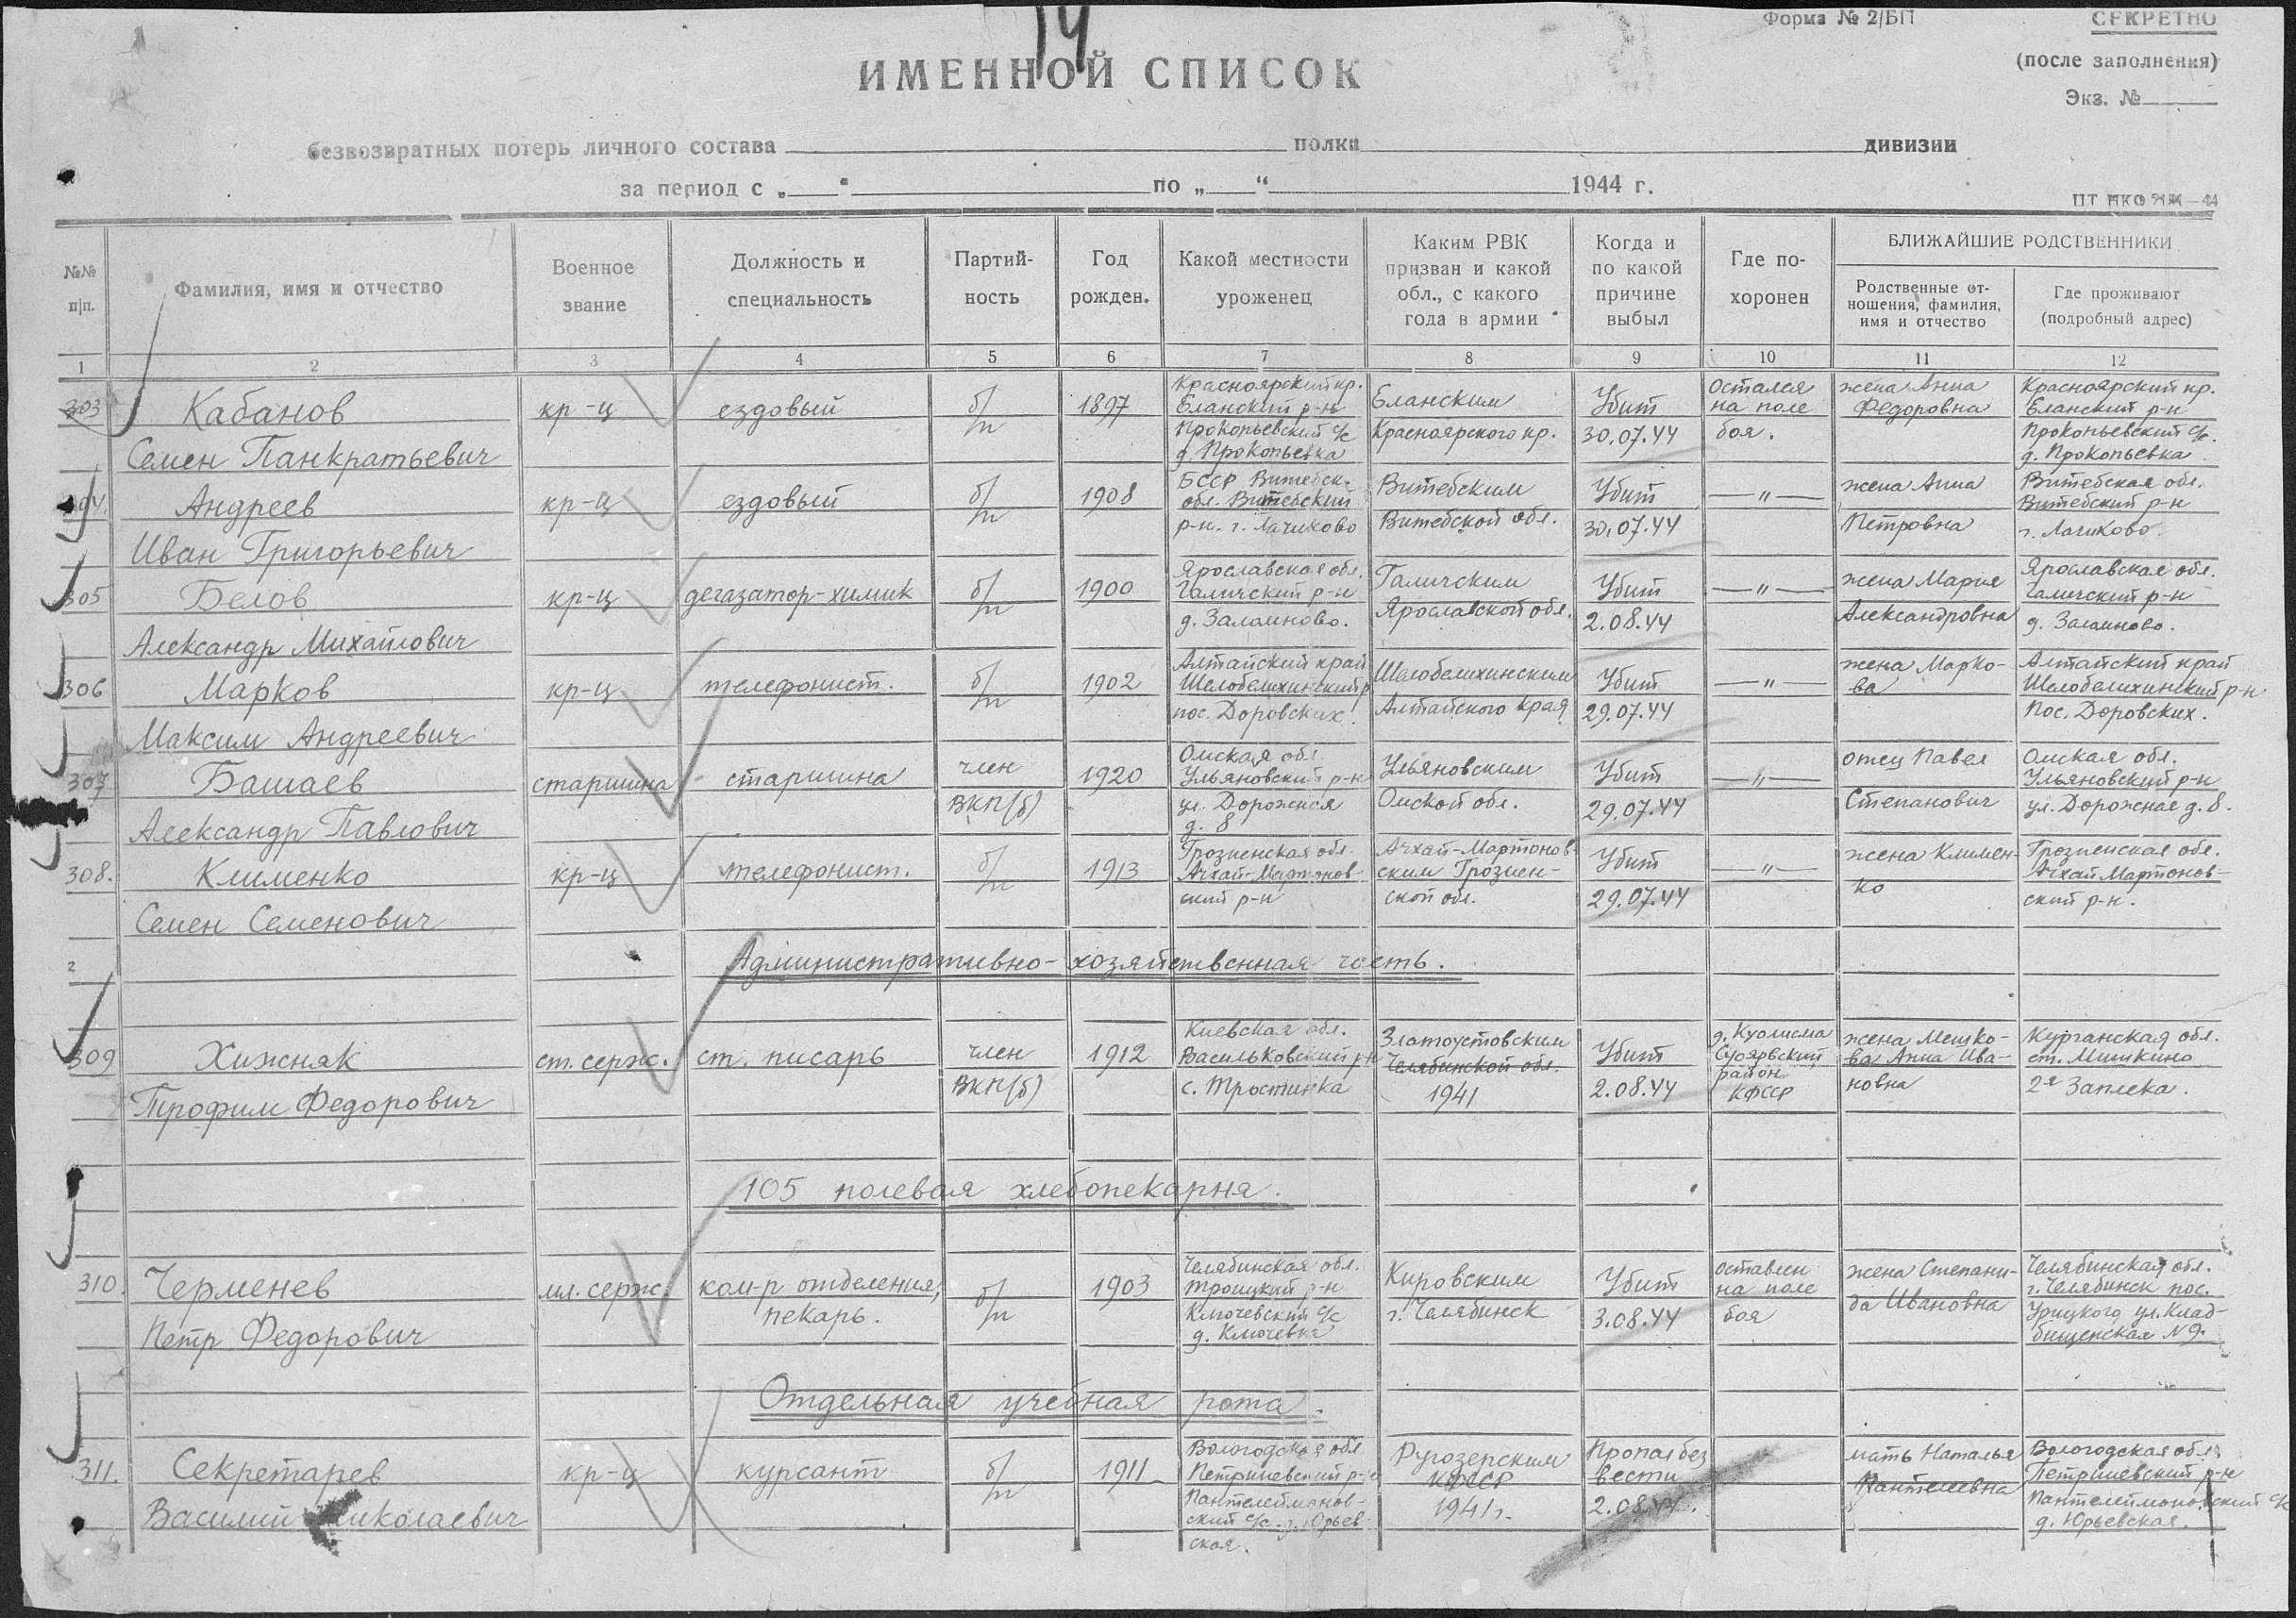 14
Форма № 2/БП
СЕКРЕТНО
(после заполнения)
Экз. №
ИМЕННОЙ СПИСОК
безвозвратных потерь личного состава полка дивизии
за период с „ “ по „ “ 1944 г.
№№ п/п.
Фамилия, имя и отчество
Военное звание
Должность и специальность
Партий-
ность
Год рожден.
Какой местности уроженец
Каким РВК
призван и какой
обл., с какого
года в армии
Когда и
по какой
причине
выбыл
Где по-
хоронен
БЛИЖАЙШИЕ РОДСТВЕННИКИ
Родственные от-
ношения, фамилия,
имя и отчество
Где проживают
(подробный адрес)
1 2 3 4 5 6 7 8 9 10 11 12
303 Кабанов
Семен Панкратьевич
кр-ц
ездовый
б/п
1897
Красноярский кр.
Еланский р-н
Прокопьевский с/с
д. Прокопьевка
Еланским
Красноярского кр.
Убит
30.07.44
остался
на поле
боя.
жена Анна
Федоровна
Красноярский кр.
Еланский р-н
Прокопьевский с/с.
д. Прокопьевка
Андреев
Иван Григорьевич
кр-ц
ездовый
б/п
1908
БССР Витебск.
обл. Витебский
р-н. г. Лачихово
Витебским
Витебской обл.
Убит
30.07.44
— " —
жена Анна
Петровна
Витебская обл.
Витебский р-н
305 Белов
Александр Михайлович
кр-ц
дегазатор-химик
б/п
1900
Ярославская обл.
Галичский р-н
д. Заломново.
Галичским
Ярославской обл.
Убит
2.08.44
— " —
жена Мария
Александровна
Ярославская обл.
Галичский р-н
306 Марков
Максим Андреевич
кр-ц
телефонист.
б/п
1902
Алтайский край
Шелоболихинский р
пос. Доровских.
Шелоболихинским
Алтайского края
Убит
29.07.44
— " —
жена Марко-
ва
Алтайский край
Шелоболихинский р-н
пос. Доровских.
307 Башаев
Александр Павлович
старшина
старшина
член
ВКП(б)
1920
Омская обл.
Ульяновский р-н
ул. Дорожная
д. 8
Ульяновским
Омской обл.
Убит
29.07.44
— " —
отец Павел
Степанович
Омская обл.
Ульяновский р-н
ул. Дорожная д. 8.
308. Клименко
Семен Семенович
кр-ц
телефонист.
б/п
1913
Грозненская обл.
Ачхай-Мартонов-
ский р-н
Ачхай-Мартонов-
ским Грознен-
ской обл.
Убит
29.07.44
— " —
жена Климен-
ко
Грозненская обл.
Ачхай Мартонов-
ский р-н.
2
Административно-хозяйственная часть.
309 Хижняк
Трофим Федорович
ст. серж.
ст. писарь
член
ВКП(б)
1912
Киевская обл.
Васильковский р-н
с. Тростинка
Златоустовским
Челябинской обл.
1941
Убит
2.08.44
д. Куолисма
Суоярвский
район
КФССР
жена Мешко-
ва Анна Ива-
новна
Курганская обл.
ст. Мишкино
105 полевая хлебопекарня.
310. Черменев
Петр Федорович
мл. серж.
ком-р отделения,
пекарь.
б/п
1903
Челябинская обл.
Троицкий р-н
Ключевский с/с
д. Ключевка
Кировским
г. Челябинск
Убит
3.08.44
оставлен
на поле
боя
жена Степани-
да Ивановна
Челябинская обл.
г. Челябинск пос.
Урицкого ул. Клад-
бищенская № 9.
Отдельная учебная рота.
311. Секретарев
Василий Николаевич
кр-ц
курсант
б/п
1911
Вологодская обл
Петриневский р-н
Пантелеймонов-
ский с/с. д. Юрьев-
ская.
Ругозерским
КФССР
1941г.
Пропал без
вести
2.08.44.
мать Наталья
Пантелеевна
Вологодская обл.
Петриневский р-н
Пантелеймоновский с/с
д. Юрьевская.